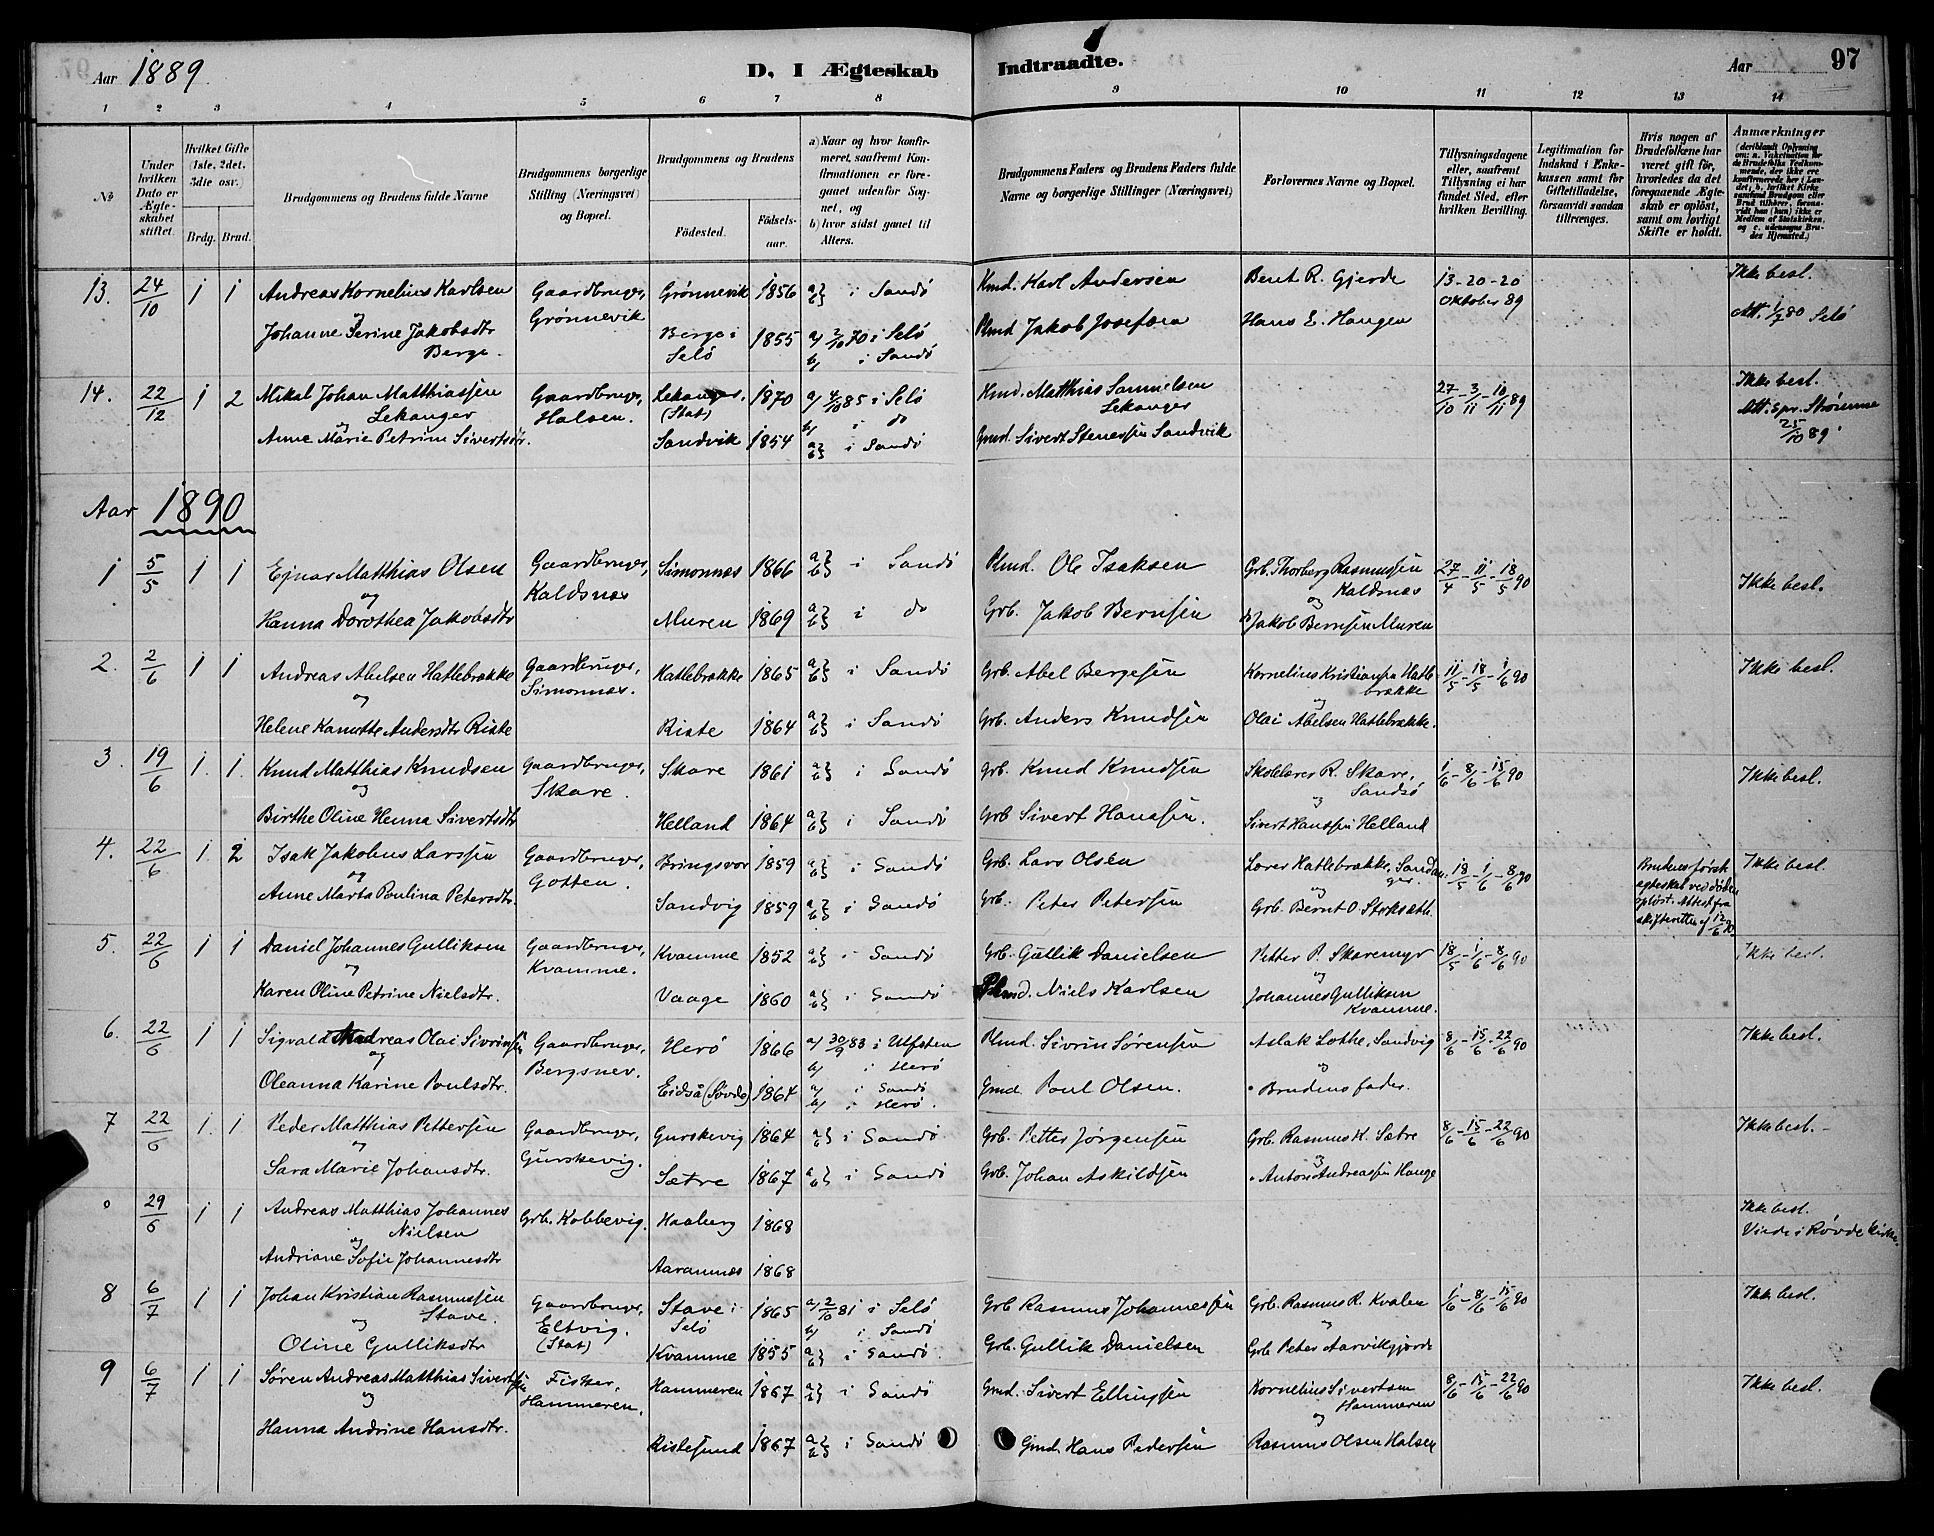 Aar 1889.
D. I Ægteskab Indtraadte.
Aar 97
1 2 3 4 5 6 7 8 9 10 11 12 13 14
No
Under hvilken Dato er Ægteskabet stiftet.
Hvilket Gifte (1ste, 2det, 3dte osv.)
Brdg. Brud.
Brudgommens og Brudens fulde Navne
Brudgommens borgerlige Stilling (Næringsvei) og Bopæl.
Brudgommens og Brudens
Födested. Födselsaar.
a) Naar og hvor konfirmeret, saafremt Konfirmationen er foregaaet udenfor Sognet, og
b) hvor sidst gaaet til Alters.
Brudgommens Faders og Brudens Faders fulde Navne og borgerlige Stillinger (Næringsvei)
Forlovernes Navne og Bopæl.
Tillysningsdagene eller, saafremt Tillysning ei har fundet Sted, efter hvilken Bevilling.
Legitimation for Indskud i Enkekassen samt for Giftetilladelse, forsaavidt saadan tiltrænges.
Hvis nogen af Brudefolkene har været gift för, hvorledes da det foregaaende Ægteskab er oplöst, samt om lovligt Skifte er holdt.
Anmærkninger (deriblandt Oplysning om: a. Vakcination for de Brudefolks Vedkommende, der ikke ere konfirmerede her i Landet; b. hvilket Kirkesamfund Brudgom eller Brud tilhörer, forsaavidt han (hun) ikke er Medlem af Statskirken, og c. udensogns Brudes Hjemsted.)
13. 24/10 1 1 Andreas Kornelius Karlsen Gaardbruger, Grønnevik 1856 a/b} i Sandö Kmd. Karl Andersen Bent R. Gjerde 13-20-20 Ikke besl.
og Grönnevik Oktober 89
Johanne Serine Jakobsdtr Berge i 1855 a/ 2/10 70 i Selö Plmd Jakob Josefsen Hans E. Haugen Att. 1/7 80 Selö
Berge. Selö b/ i Sandö
14. 22/12 1 2 Mikal Johan Matthiassen Gaardbruger, Lekanger, 1870 a/ 4/10 85 i Selö Kmd. Matthias Samuelsen 27/10-3/11-10/11 89 Ikke besl.
Lekanger Halsen. (Stat) b/ i do Lekanger Att. spr. Strömme
og 25/10 89.
Anne Marie Petrine Sivertsdtr. Sandvik 1854 a/b} i Sandö Gmd. Sivert Stenessen Sandvik
Aar 1890
1 5/5 1 1 Ejnar Matthias Olsen Gaardbruger, Simonnæs 1866 a/b} i Sandö Plmd. Ole Isaksen Grb. Thorberg Rasmussen 27/4-11/5-18/5 90 Ikke besl.
og Kaldsnæs Kaldsnæs og
Hanna Dorothea Jakobsdtr Muren 1869 a/b} i do Grb. Jakob Berntsen Jakob Berntsen Muren
2. 2/6 1 1 Andreas Abelsen Hatlebrække Gaardbruger, Hatlebrække 1865 a/b} i Sandö Grb. Abel Bergesen Kornelius Kristiansen Hatlebrække 11/5-18/5-1/6 90 Ikke besl.
og Simonnæs. og
Helene Kanutte Andersdtr Riste Riste 1864 a/b} i Sandö Grb. Anders Knudsen Olai Abelsen Hatlebrække.
3. 19/6 1. 1. Knud Matthias Knudsen Gaardbruger, Skare 1861 a/b} i Sandö Grb. Knud Knudsen Skolelærer R. Skare, 1/6-8/6-15/6 90 Ikke besl.
og Skare. Sandsö og
Birthe Oline Henna Sivertsdtr Helland 1864 a/b} i Sandö Grb Sivert Hanssen. Sivert Hanssen Helland
4. 22/6 1. 2 Isak Jakobus Larssen Gaardbruger, Bringsvor 1859 a/b} i Sandö Grb. Lars Olsen Lærer Hatlebrække, Sandanger. 18/5-1/6-8/6 90 Brudens förste Ikke besl.
og Gotten. og egteskab ved döden
Anne Marta Poulina Petersdtr. Sandvig 1859 a/b} i Sandö Grb. Peter Petersen Grb. Bernt O. Stoksæth. oplöst. Attest fra
skifteretten af 12/6 90.
5. 22/6 1 1 Daniel Johannes Gulliksen Gaardbruger, Kvamme 1852 a/b} i Sandö Grb. Gullik Danielsen Petter P. Skaremyr 18/5-1/6-8/6 90 Ikke besl.
og Kvamme. og
Karen Oline Petrine Nielsdtr. Vaage 1860 a/b} i Sandö Plmd. Niels Karlsen Johannes Gulliksen
Kvamme.
6. 22/6 1 1 Sigvald Andreas Olai Sivrinsen Gaardbruger, Herö 1866 a/ 30/9 83 i Ulfsten Plmd. Sivrin Sörensen Aslak Lothe, Sandvig 8/6-15/6-22/6 90 Ikke besl.
og Bergsnev. b/ i Herö og
Oleanna Karine Poulsdtr. Eidsaa (Sövde) 1864 a/ i Sandö Gmd. Poul Olsen. Brudens fader.
b/ i Herö.
7 22/6 1. 1. Peder Matthias Pettersen Gaardbruger, Gurskevig 1864 a/b} i Sandö Grb. Petter Jörgensen Grb. Rasmus K. Sætre 8/6-15/6-22/6 90 Ikke besl.
og Gurskevig. og
Sara Marie Johansdtr. Sætre 1867 a/b} i Sandö Grb. Johan Askildsen Anton Andreassen Hauge
0 29/6 1 1 Andreas Matthias Johannes Grb. Kobbevig. Haaberg 1868 Ikke besl.
Nielsen Viede i Rövde kirke.
og
Andriane Sofie Johannesdtr Aaramnæs 1868
8 6/7 1 1 Johan Kristian Rasmussen Gaardbruger, Stave i 1865 a/ 2/10 81 i Selö Grb Rasmus Johannessen Grb. Rasmus R. Kvalen 1/6-8/6-15/6 90 Ikke besl.
Stave. Eltvig. Selö b/ i Sandö og
og (Stat)
Oline Gulliksdtr Kvamme 1855 a/b} i Sandö. Grb. Gullik Danielsen Grb Peter Aarvikgjerde
9 6/7 1 1 Sören Andreas Matthias Sivertsen Fisker, Hammeren 1867 a/b} i Sandö Gmd. Sivert Ellingsen Kornelius Sivertsen 8/6-15/6-22/6 90 Ikke besl.
og Hammeren. Hammeren og
Hanna Andrine Hansdtr. Ristesund 1867 a/b} i Sandö Gmd. Hans Pedersen Rasmus Olsen Halsen